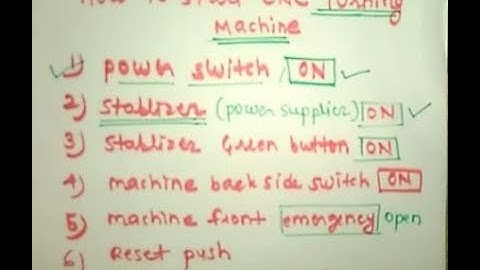 How to start CNC Turning
Machine
1) power switch ON
2) Stablizer (power supplier) ON
3) Stablizer Green button ON
4) machine back side switch ON
5) machine front emergency open
6) Reset push